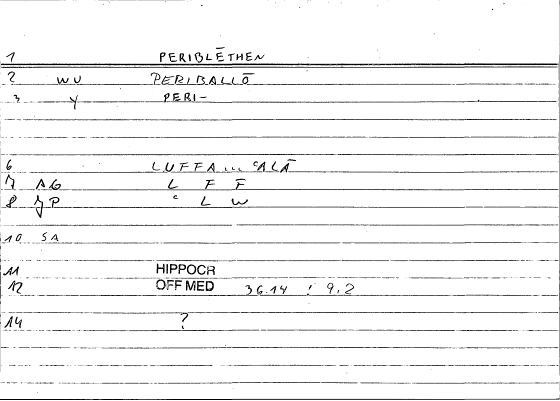 1 PERIBLĒTHEN
2 WU PERIBALLŌ
3 Y PERI-
6 LUFFA ... ʿALĀ
7 AG L F F̄
8 JP ʿ L W
10 SA
11 HIPPOCR
12 OFF MED 36.14 ; 9,2
14 ?